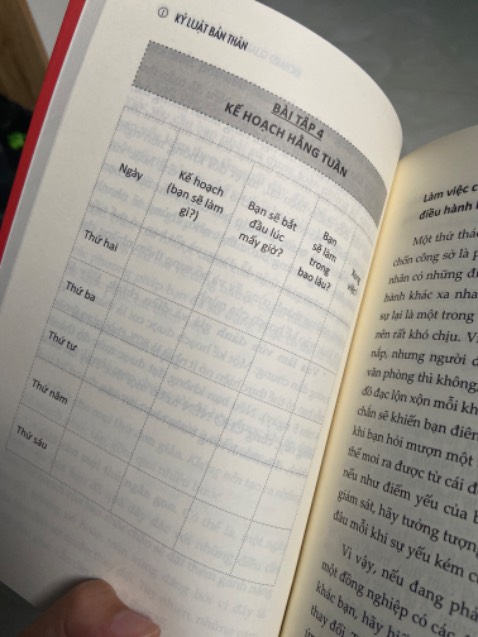 KỶ LUẬT BẢN THÂN
BÀI TẬP 4
KẾ HOẠCH HẰNG TUẦN
Ngày
Kế hoạch
(bạn sẽ làm
gì?)
Bạn sẽ bắt
đầu lúc
mấy giờ?
Bạn
sẽ làm
trong
bao lâu?
Xong
việc?
Thứ hai
Thứ ba
Thứ tư
Thứ năm
Thứ sáu
Làm việc
điều hành
Một thử
chốn công sở là
nhân có những
hành khác xa
sự lại là một trong
nên rất khó chịu.
nắp, nhưng người
văn phòng thì không,
đồ đạc lộn xộn mỗi
chắn sẽ khiến bạn
khi bạn hỏi mượn một
thể moi ra được từ cái
nếu như điểm yếu của
giám sát, hãy tưởng
đầu mỗi khi sự yếu kém
Vì vậy, nếu đang
một đồng nghiệp có các
khác bạn, hãy
thay đổi.